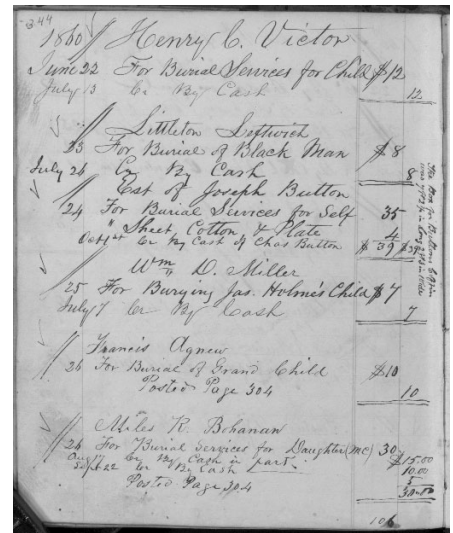 344
1860 // Henry C. Victor
June 22 For Burial Services for Child $12
July 3 Cr By Cash 12
Littleton Leftwich
23 For Burial of Black Man $8
July 24 Cr By Cash 8
Est of Joseph Button
24 For Burial Services for Self 35
" Sheet, Cotton & Plate 4
Oct 1st Cr By Cash of Chas Button $39 $39
Wm D. Miller
25 For Burying Jas. Holmes Child $7
July 7 Cr By Cash 7
Francis Agnew
26 For Burial of Grand Child $10
Posted Page 304 10
Miles R. Bohanan
26 For Burial Services for Daughter (Mc) 30
Aug 17 Cr By Cash in part $15.00
Sept 22 Cr By Cash 10.00
5
Posted Page 304 30.00
106